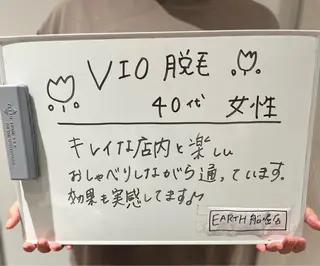 VIO 脱毛
40代 女性
キレイな店内と楽しい
おしゃべりしながら通っています。
効果も実感してます♪
EARTH船堀店